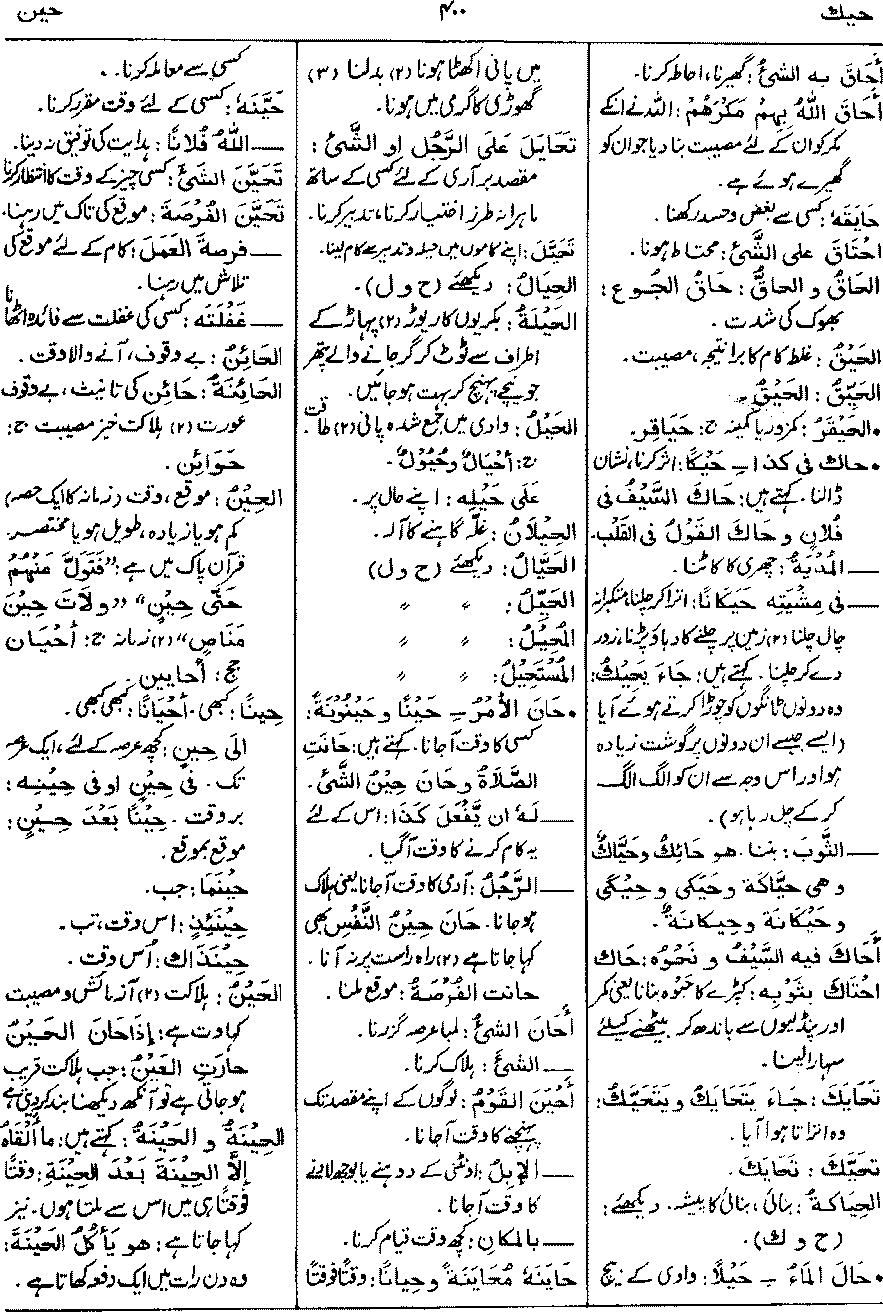 حيك
۴۰۰
حين
أَحَاقَ به الشئُ: گھیرنا، احاطہ کرنا.
أَحَاقَ اللهُ بِهِمْ مَكْرَهُمْ: اللہ نے انکے
مکر کو ان کے لئے مصیبت بنا دیا جو ان کو
گھیرے ہوئے ہے.
حَايَقَهُ: کسی سے بغض و حسد رکھنا.
احْتَاقَ على الشَّئِ: محتاط ہونا.
الحَاقُ و الحاقُّ: حَاقُ الجُوع:
بھوک کی شدت.
الحَيْقُ: غلط کام کا برا نتیجہ، مصیبت.
الحَيِّقُ: الحَيْقُ.
•الحَيْقَرُ: کمزور یا کمینہ ج: حَيَاقر.
•حاك فى كذا ـِ حَيْكًا: اثر کرنا، نشان
ڈالنا. کہتے ہیں: حَاكَ السَّيْفُ فى
فُلانٍ و حَاكَ القَوْلُ فى القَلْبِ.
ــ المُدْيَةُ: چھری کا کاٹنا.
ــ فى مِشْيَتِه حَيَكَانًا: اترا کر چلنا، متکبرانہ
چال چلنا (۲) زمین پر چلنے کا دباؤ پڑنا، زور
دے کر چلنا. کہتے ہیں: جَاءَ يَحِيْكُ:
وہ دونوں ٹانگوں کو چوڑا کرتے ہوئے آیا
(ایسے جیسے ان دونوں پر گوشت زیادہ
ہو اور اس وجہ سے ان کو الگ الگ
کر کے چل رہا ہو).
ــ الثَّوبَ: بننا. هو حَائِكٌ وحَيَّاكٌ
و هى حَيَّاكَة و حَيَكَى و حِيْكَى
و حَيْكَانَة و حِيكانَةٌ.
أَحَاكَ فيه السَّيْفُ و نَحْوُه: حَاك
احْتَاكَ بِثَوْبِه: کپڑے کا حَبْوَہ بنانا یعنی کمر
اور پنڈلیوں سے باندھ کر بیٹھنے کیلئے
سہارا لینا.
تَحَايَكَ: جَاءَ يَتَحَايَكُ و يَتَحَيَّكُ:
وہ اتراتا ہوا آیا.
تَحَيَّكَ: تَحَايَكَ.
الحِيَاكَةُ: بنائی، بنائی کا پیشہ. دیکھئے:
(ح و ك).
•حَالَ المَاءُ ـِ حَيْلًا: وادی کے بیچ
میں پانی اکھٹا ہونا (۲) بدلنا (۳)
گھوڑی کا گرمی میں ہونا.
تَحَايَلَ عَلَى الرَّجُلِ او الشَّئِ:
مقصد برآری کے لئے کسی کے ساتھ
ماہرانہ طرز اختیار کرنا، تدبیر کرنا.
تَحَيَّلَ: اپنے کاموں میں حیلہ و تدبیر سے کام لینا.
الحِيَالُ: دیکھئے (ح و ل).
الحَيْلَةُ: بکریوں کا ریوڑ (۲) پہاڑ کے
اطراف سے ٹوٹ کر گر جانے والے پتھر
جو نیچے پہنچ کر بہت ہو جائیں.
الحَيْلُ: وادی میں جمع شدہ پانی (۲) طاقت
ج: أَحْيَالٌ وحُيُولٌ.
عَلَى حَيْلِه: اپنے حال پر.
الحِيْلَانُ: غلّہ گاہنے کا آلہ.
الحَيَّالُ: دیکھئے (ح و ل)
الحَيِّلُ: 〃 〃
المُحِيْلُ: 〃 〃
المُسْتَحِيْلُ: 〃 〃
•حَانَ الأَمْرُ ـِ حَيْنًا و حَيْنُونَةً:
کسی کا وقت آ جانا. کہتے ہیں: حَانَتِ
الصَّلَاةُ و حَانَ حِيْنُ الشَّئِ.
ــ لَهُ ان يَّفْعَلَ كَذَا: اس کے لئے
یہ کام کرنے کا وقت آ گیا.
ــ الرَّجُلُ: آدمی کا وقت آ جانا یعنی ہلاک
ہو جانا. حَانَ حِيْنُ النَّفْسِ بھی
کہا جاتا ہے (۲) راہ راست پر نہ آنا.
حانت الفُرْصَةُ: موقع ملنا.
أَحَانَ الشئُ: لمبا عرصہ گزرنا.
ــ الشئَ: ہلاک کرنا.
أَحْيَنَ القَوْمُ: لوگوں کے اپنے مقصد تک
پہنچنے کا وقت آ جانا.
ــ الإبِلُ: اونٹنی کے دوہنے یا بوجھ لادنے
کا وقت آ جانا.
ــ بالمكان: کچھ وقت قیام کرنا.
حَايَنَهُ مُحَايَنَةً و حِيانًا: وقتًا فوقتًا
کسی سے معاملہ کرنا.
حَيَّنَهُ: کسی کے لئے وقت مقرر کرنا.
ــ اللهُ فُلانًا: ہدایت کی توفیق نہ دینا.
تَحَيَّنَ الشئَ: کسی چیز کے وقت کا انتظار کرنا
تَحَيَّنَ الفُرْصَةَ: موقع کی تاک میں رہنا.
ــ فرصةَ العَمَلِ: کام کے لئے موقع کی
تلاش میں رہنا.
ــ غَفْلَتَه: کسی کی غفلت سے فائدہ اٹھانا
الحَائِنُ: بے وقوف، آنے والا وقت.
الحَائِنَةُ: حَائِن کی تانیث، بے وقوف
عورت (۲) ہلاکت خیز مصیبت ج:
حَوَائِن.
الحِيْنُ: موقع، وقت (زمانہ کا ایک حصہ)
کم ہو یا زیادہ، طویل ہو یا مختصر.
قرآن پاک میں ہے: ”فَتَوَلَّ عَنْهُمْ
حَتّٰى حِيْنٍ“ ”ولَاتَ حِيْنَ
مَنَاصٍ“ (۲) زمانہ ج: أَحْيَان
جج: أَحايين.
حِينًا: کبھی. أَحْيَانًا: کبھی کبھی.
الى حِينٍ: کچھ عرصہ کے لئے، ایک عرصہ
تک. فى حِيْنٍ او فى حِيْنِه:
بر وقت. حِيْنًا بَعْدَ حِيْنٍ:
موقع بموقع.
حِيْنَمَا: جب.
حِيْنَئِذٍ: اس وقت، تب.
حِيْنَذَاك: اُس وقت.
الحَيْنُ: ہلاکت (۲) آزمائش و مصیبت
کہاوت ہے: إذَا حَانَ الحَيْنُ
حَارَتِ العَيْنُ: جب ہلاکت قریب
ہو جاتی ہے تو آنکھ دیکھنا بند کر دیتی ہے
الحِيْنَةُ و الحَيْنَة: کہتے ہیں: ما أَلْقَاهُ
إلَّا الحِيْنَةَ بَعْدَ الحِيْنَةِ: وقتًا
فوقتًا ہی میں اس سے ملتا ہوں. نیز
کہا جاتا ہے: هو يَأْكُلُ الحِيْنَةَ:
وہ دن رات میں ایک دفعہ کھاتا ہے.